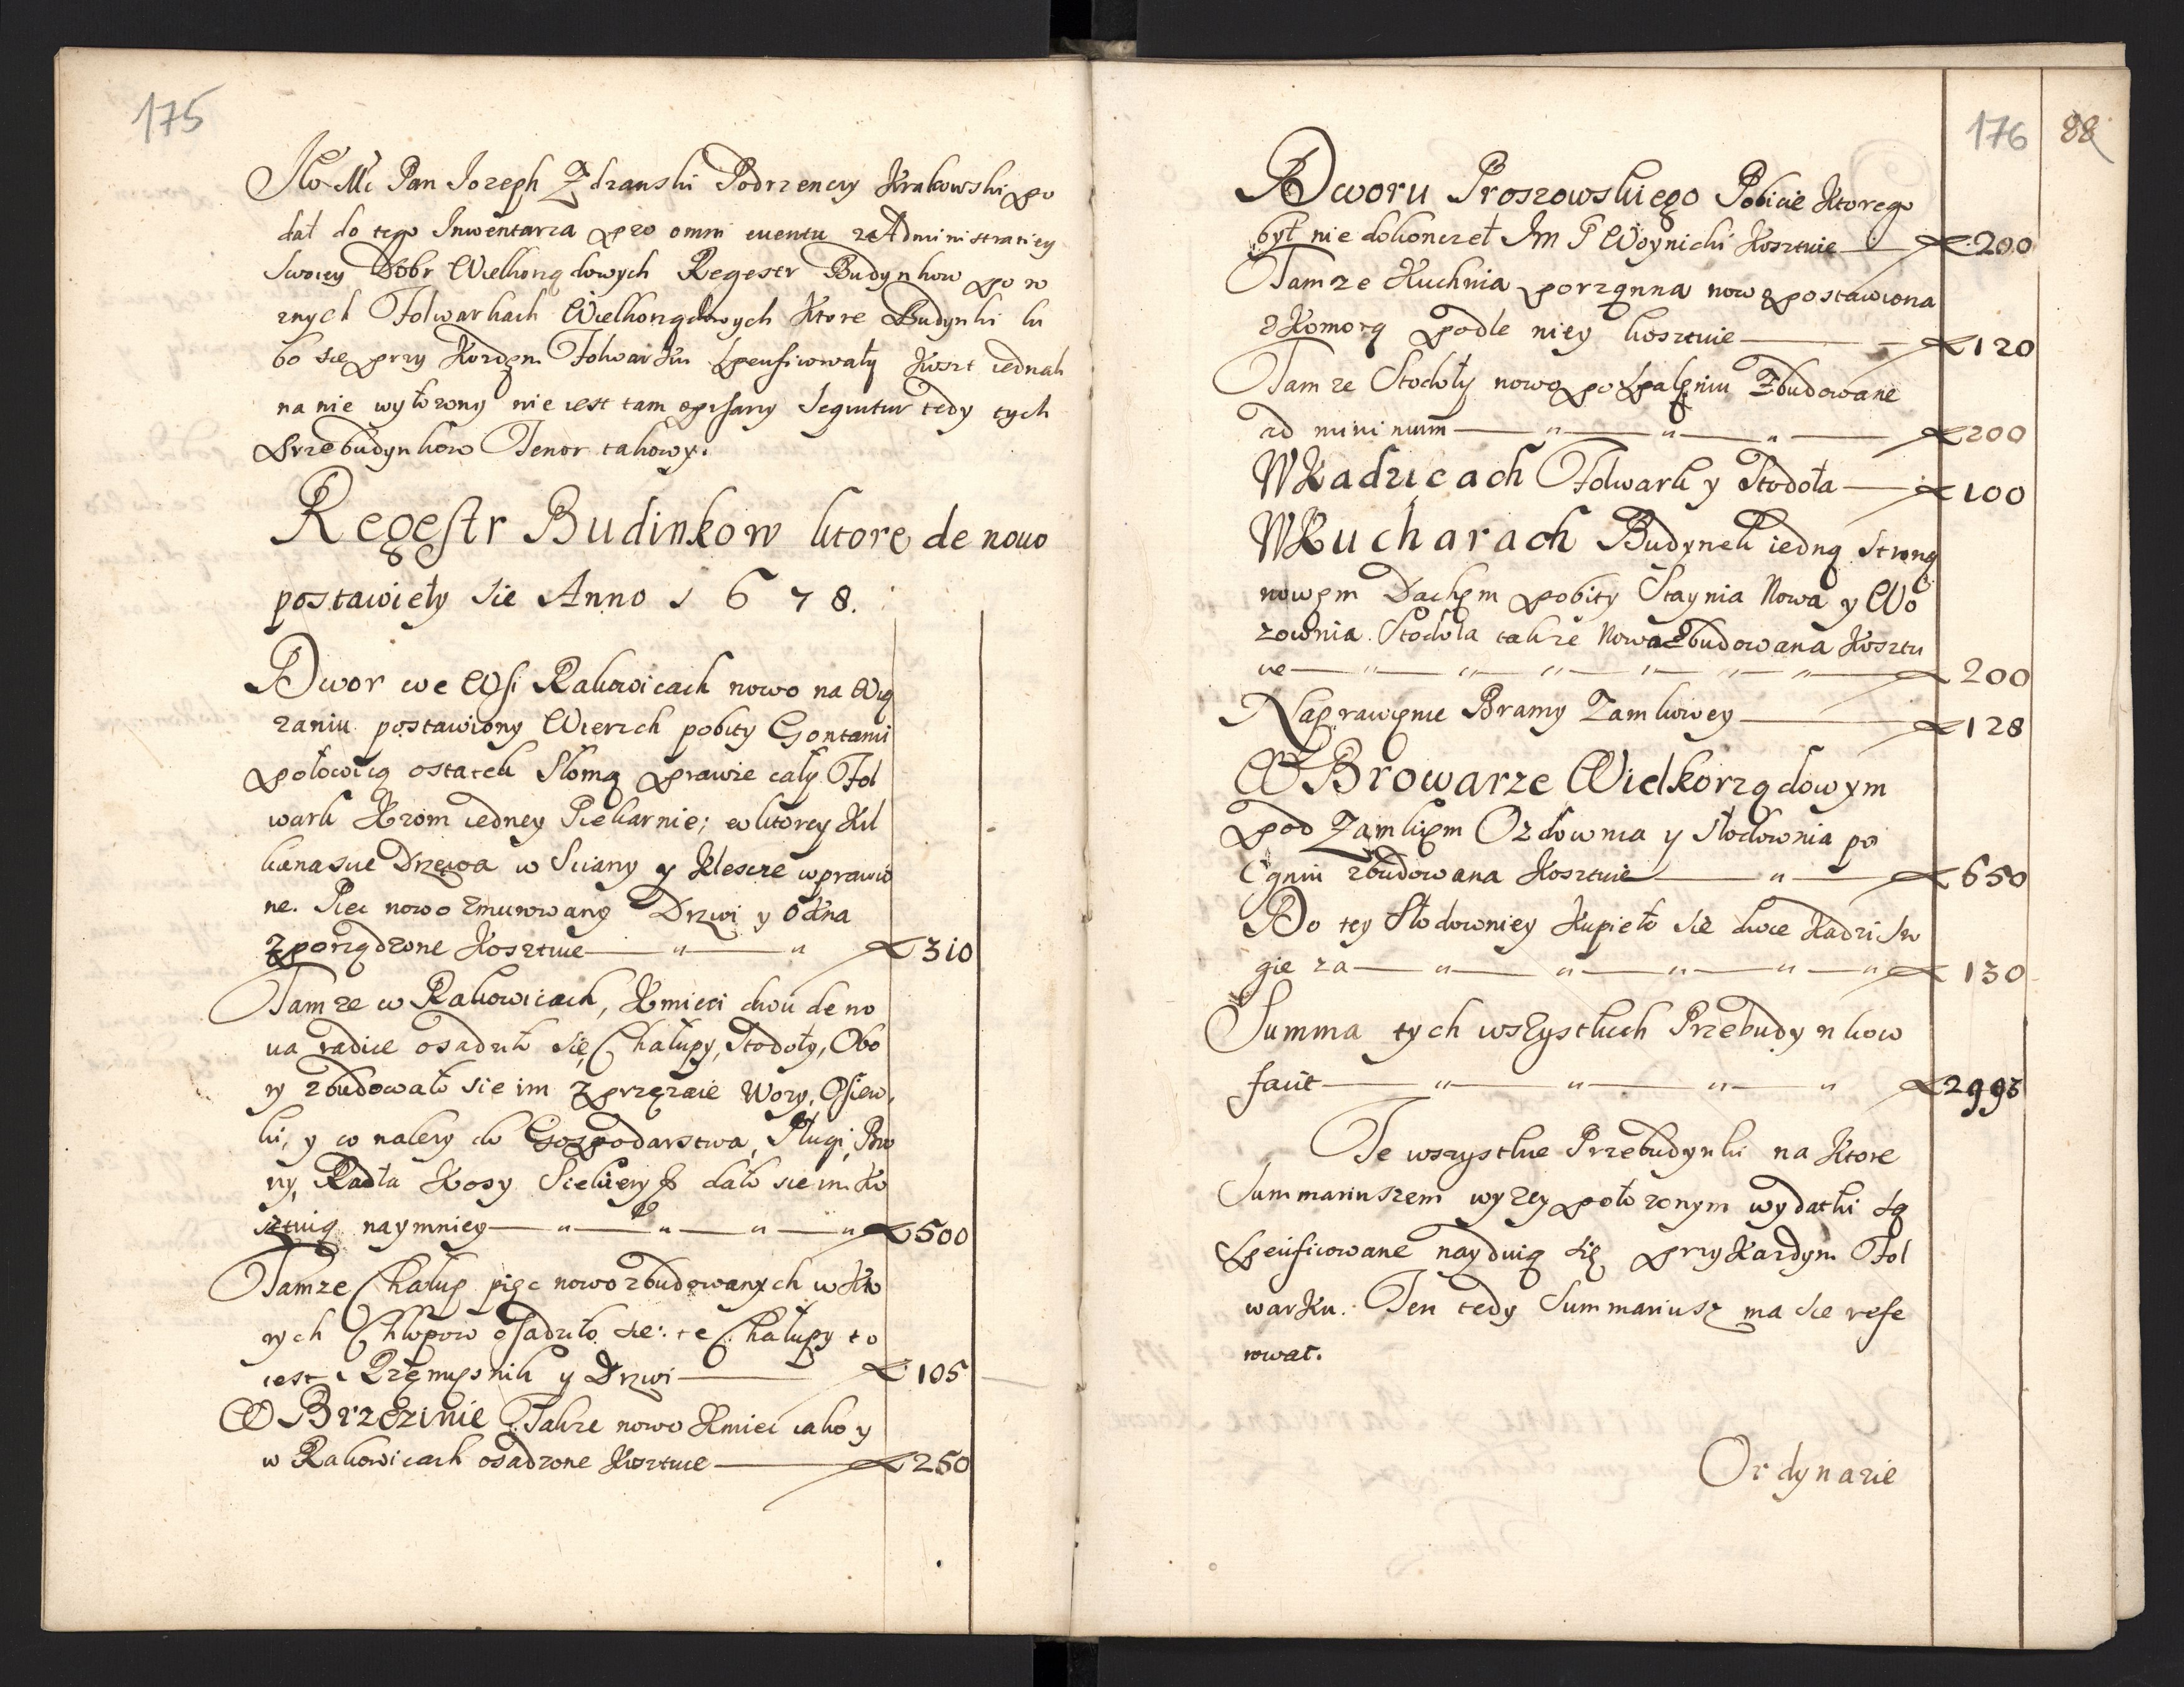 175
JeoMci Pan Jozeph Zdzanski Podrzenczy Krakowski po
dał do tego Inwentarza pro omni euentu z Administraciey
Swoiey Dobr Wielkorządowych Regestr Budynkow po ro
znych Folwarkach Wielkorządowych Ktore Budynki lu
bo się przy Kozdym Folwarku Specificowały Koszt iednak
na nie wyłozony nie iest tam opisany Sequitur tedy tych
Przebudynkow Tenor takowy.
Regestr Budinkow ktore de nouo
postawieły sie Anno 1678.
Dwor we Wsi Rakowicach nowo na Wią
zaniu postawiony Wierzch pobity Gontami
połowicą ostatek Słomą prawie cały Fol
wark Krom iedney Piekarnie; w ktorey Kil
kanascie Drzewa w Sciany y Kleszcze wprawio
ne. Piec nowo zmurowany Drzwi y Okna
zporządzone Kosztuie — " — " 310
Tamze w Rakowicach, Kmieci dwu de no
ua radice osadzieło się Chałupy, Stodoły, Obo
ry zbudowało sie im Zprzęzaie Wozy, Osiew
ki, y co nalezy do Gospodarstwa, Pługi, Bro
ny, Radła Kosy Siekiery & dało sie im Ko
sztuią naymniey — " — " — " — " 500
Tamze Chałup pięc nowo zbudowanych w Kto
rych Chłopow osadziło sie: te Chałupy to
iest Rzęmięsnik y Drzwi — 105
W Brzezinie Takze nowo Kmiec iako y
w Rakowicach osadzone Kosztuie — 250
176 88
Dworu Proszowskiego Pobicie Ktorego
był nie dokonczeł Im P Woynicki Kosztuie — 200
Tamze Kuchnia porządna nowo postawiona
z Komorą podle niey kosztuie — 120
Tamze Stodoły nowo po Spaleniu Zbudowane
ad minimum — " — " — " — 200
W Kadzicach Folwark y Stodoła — 100
W Kucharach Budynek iedną stroną
nowym Dachem pobity Staynia Nowa y Wo
zownia. Stodoła takze Nowa zbudowana Kosztu
ie — " — " — " — " — " — " — 200
Naprawienie Bramy Zamkowey — 128
W Browarze Wielkorządowym
pod Zamkiem Ozdownia y Słodownia po
Ogniu zbudowana Kosztuie — " — 650
Do tey Słodowniey Kupieło się dwie Kadzi Dro
gie za — " — " — " — " — " 130
Summa tych wszystkich Przebudynkow
facit — " — " — " — " 2993
Te wszystkie Przebudynki na Ktore
Summariuszem wyzey połozonym wydatki są
Specificowane nayduią się przy Kazdym Fol
warku. Ten tedy Summariusz ma sie refe
rowac.
Ordynarie